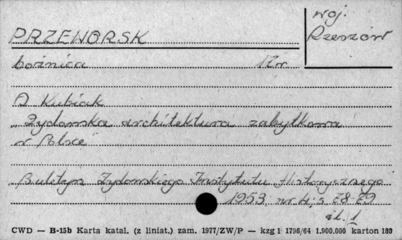 woj.
Rzeszów
PRZEWORSK
bożnica XIX w
A Kubiak
„Żydowska architektura zabytkowa
w Polsce
Biuletyn Żydowskiego Instytutu Historycznego
1953, nr 4; s. 28-29
il. 1
CWD — B-15b Karta katal. (z liniat.) zam. 1977/ZW/P — kzg 1 1796/64 1.900.000 karton 180